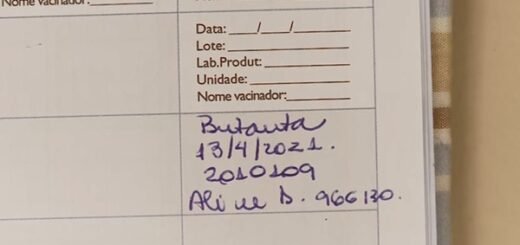 Nome vacinador:
Data: ___/___/___
Lote:
Lab.Produt:
Unidade:
Nome vacinador:
Butanta
13/4/2021.
2010109
Aline D. 966130.